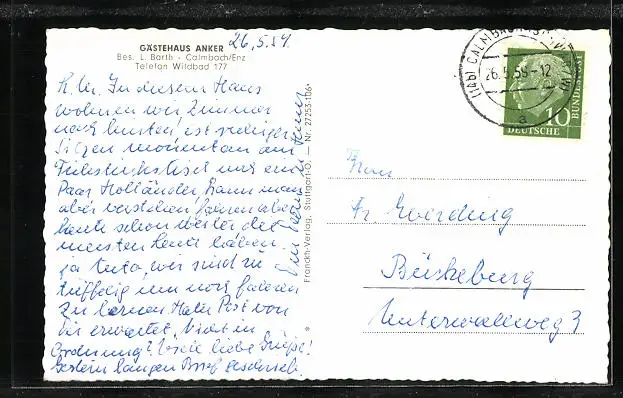 GÄSTEHAUS ANKER
Bes. L. Barth - Calmbach/Enz
Telefon Wildbad 177
26.5.59.
In diesem Haus
wohnen wir Zimmer
nach hinten, ist ruhiger
Sitzen momentan am
Frühstückstisch und ein
Paar Holländer, kann man
aber verstehen, fahren aber
heute schon weiter, die
meisten Leute haben
ja Auto, wir sind zu
und noch fahren
zu lernen. Habe Post von
Dir erwartet. Nicht in
Ordnung? Viele liebe Grüße!
Gestern langen Brief geschrieb.
Franckh-Verlag, Stuttgart-O. — Nr. 27253-106
(14b) CALMBACH
26.5.59-12
a
10
DEUTSCHE
BUNDESPOST
Frau
Fr. Everding
Bückeburg
Unterwallweg 3